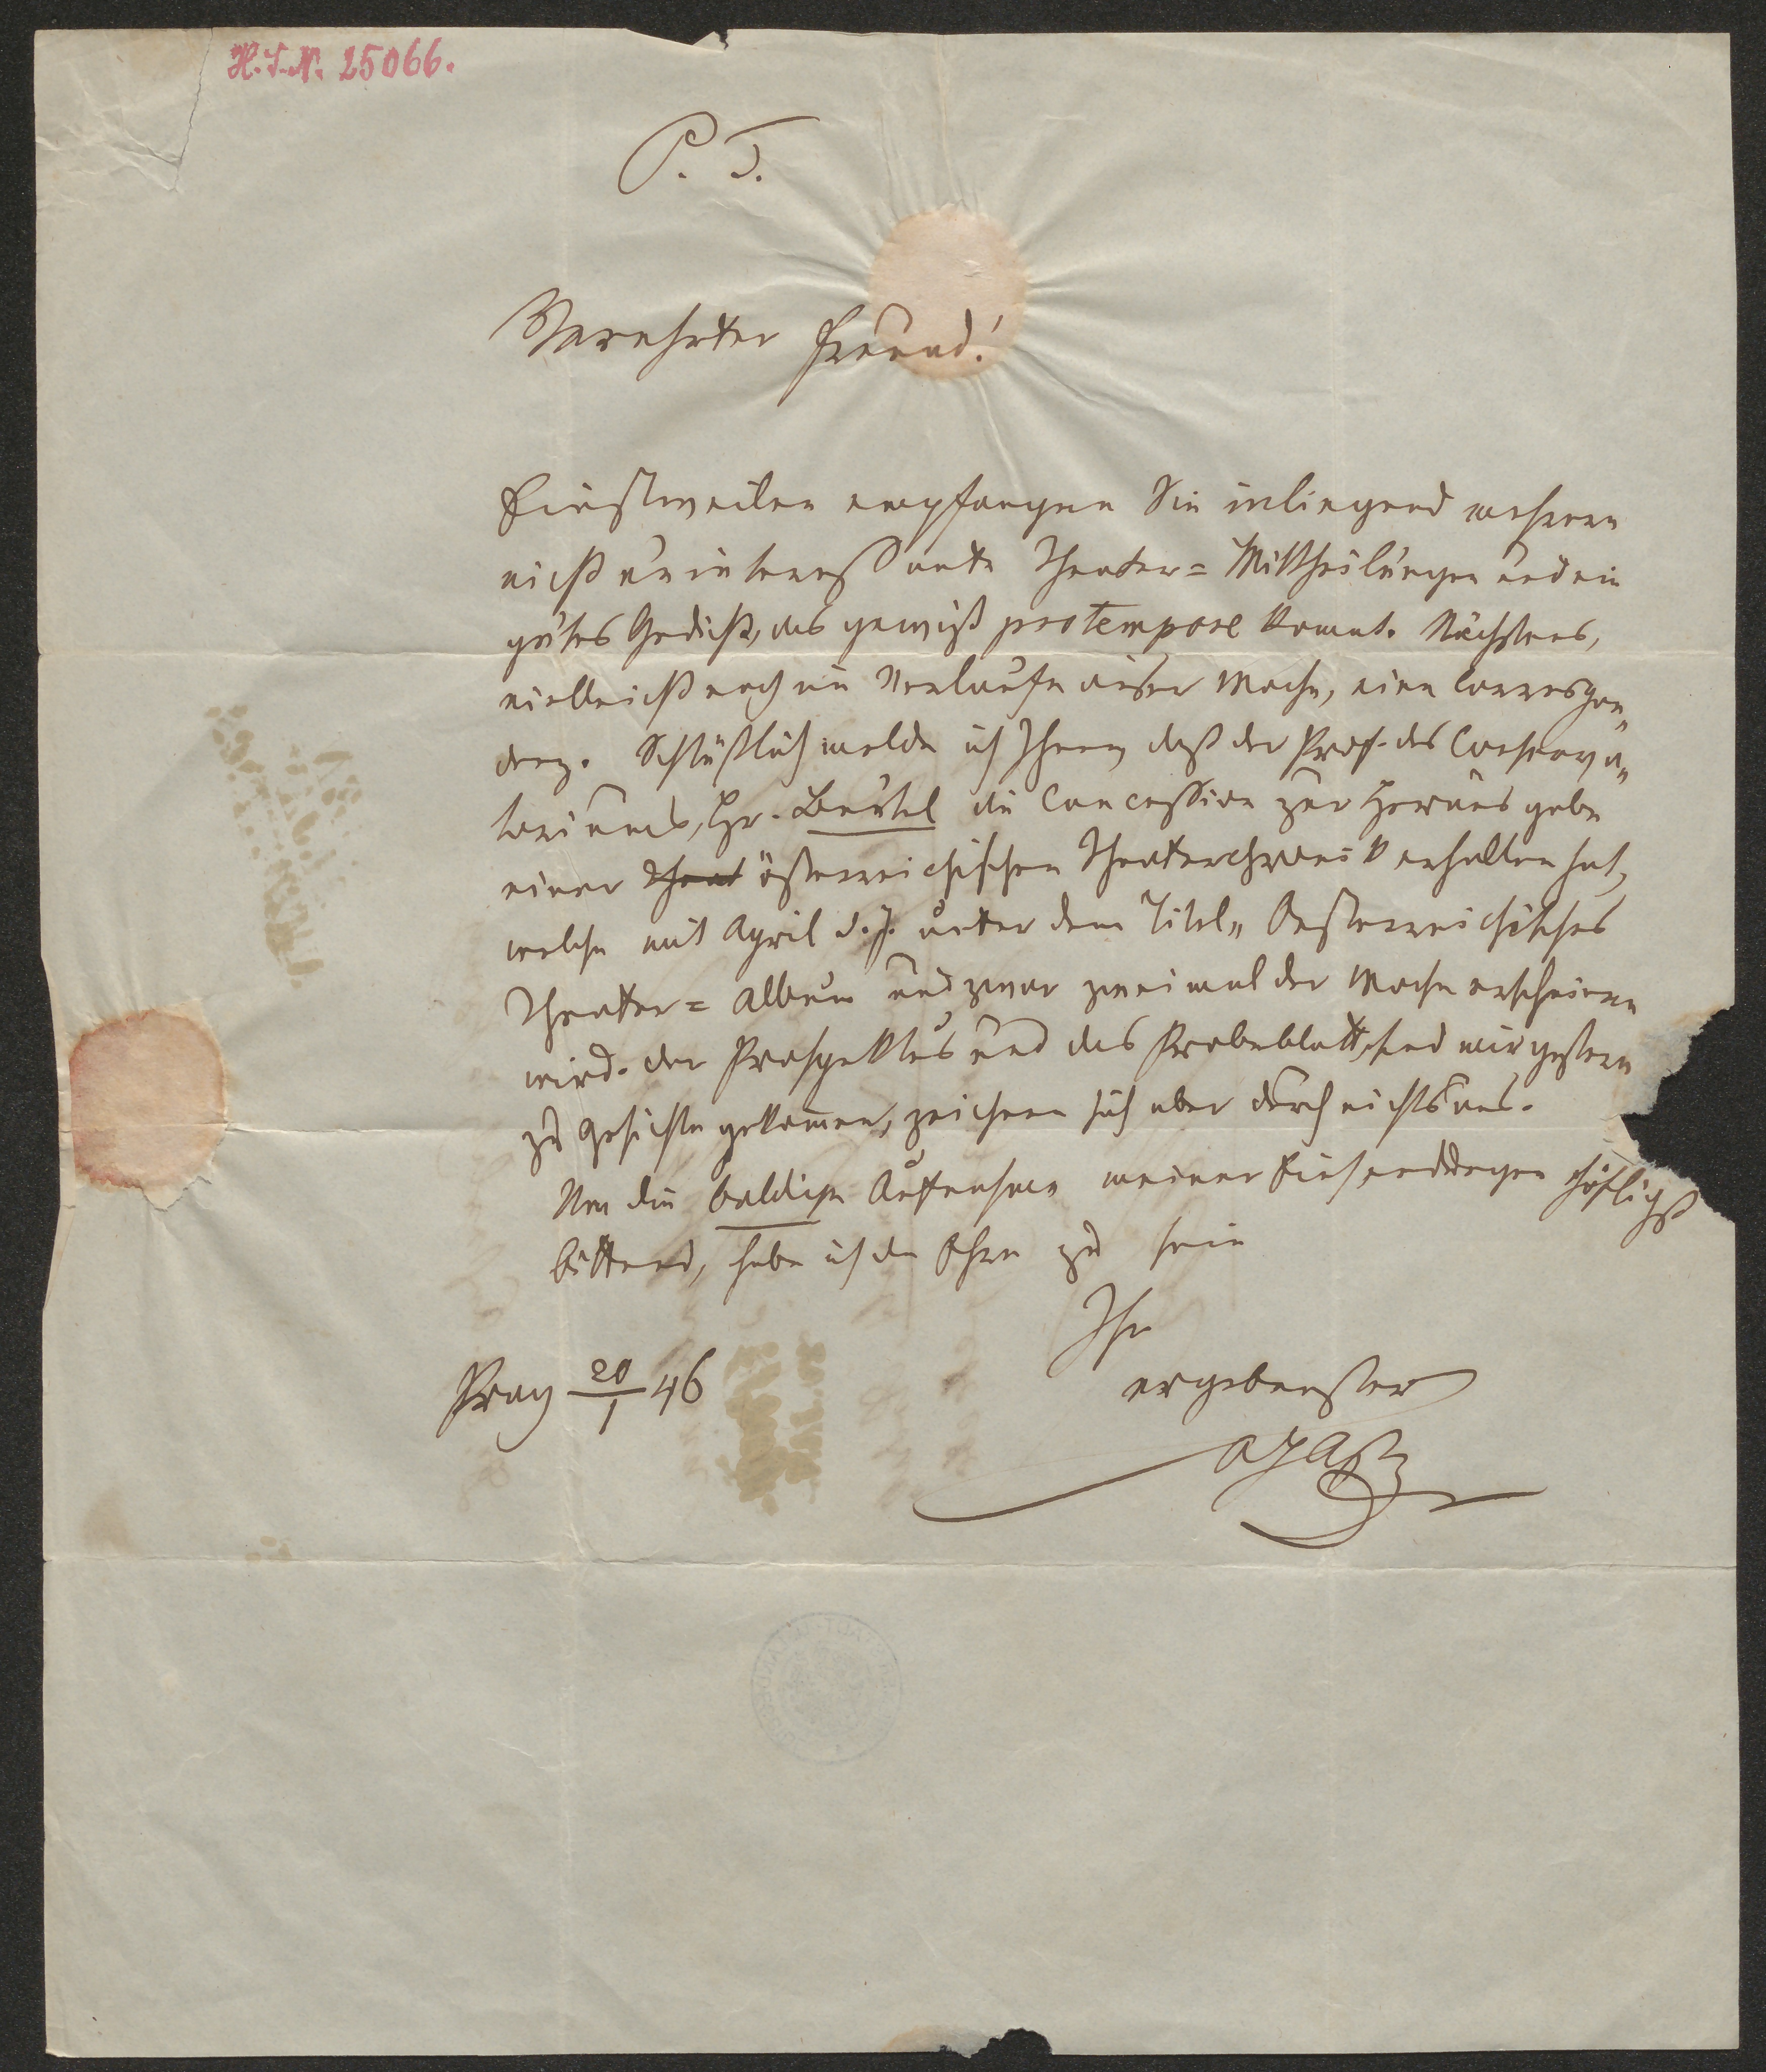 H. I. N. 25066.
P. T.
Verehrter Freund!
Einstweilen empfangen Sie inliegend mehrere
nicht uninteressante Theater=Mittheilungen und ein
gutes Gedicht, das gewiß pro tempore kommt. Nächstens,
vielleicht noch im Verlaufe dieser Woche, eine Correspon„
denz. Schlüßlich melde ich Ihnen, daß der Prof. des Conserva„
toriums, Hr. Beutel die Concession zur Herausgabe
einer Theat österreichischen Theaterchronik erhalten hat,
welche mit April d. J. unter dem Titel „Oesterreichisches
Theater=Album und zwar zweimal der Woche erscheinen
wird. Der Prospektus und das Probeblatt sind mir gestern
zu Gesichte gekommen, zeichnen sich aber durch nichts aus.
Um die baldige Aufnahme meiner Einsendungen höflichst
bittend, habe ich die Ehre zu sein
Ihr
ergebenster
Prag 20/1 46